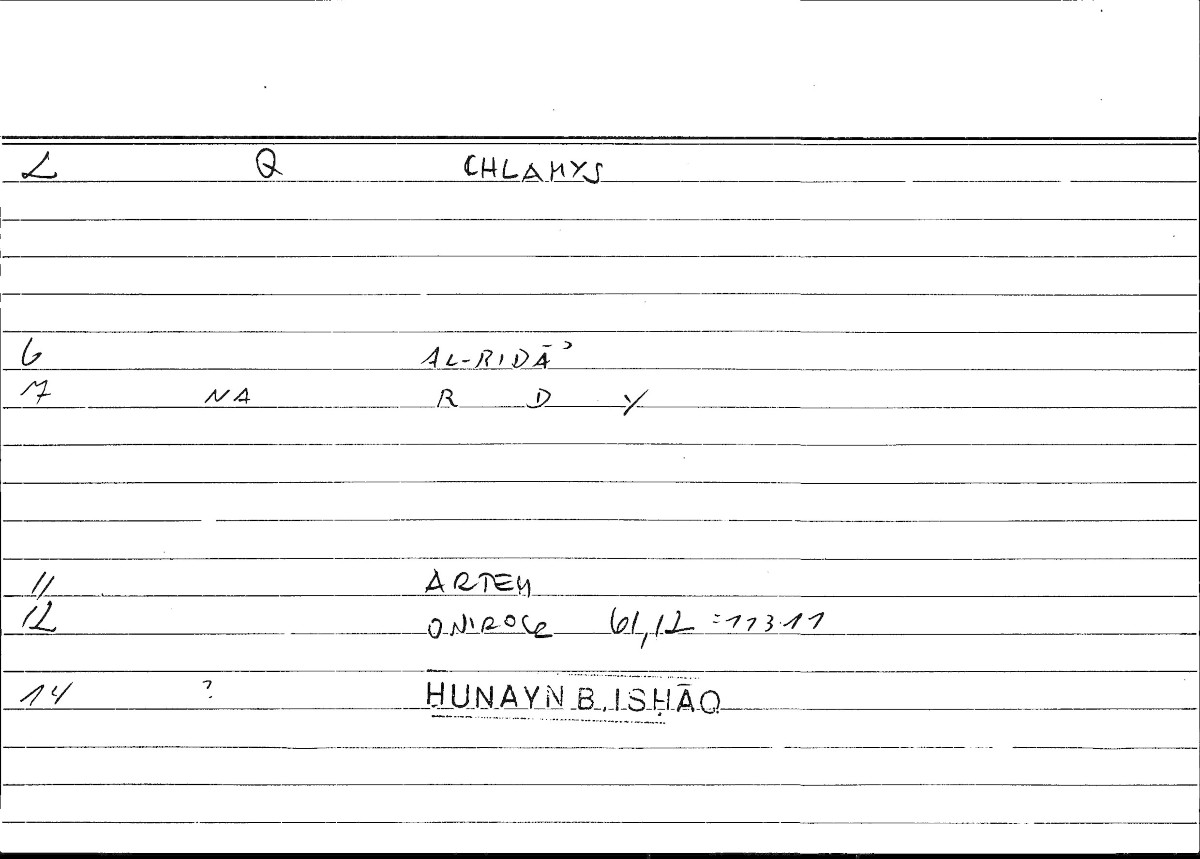 L Q CHLAMYS
6 AL-RIDĀʾ
7 NA R D Y
11 ARTEM
12 ONIROCR 61,12 = 113.11
14 ? ḤUNAYN B. ISḤĀQ